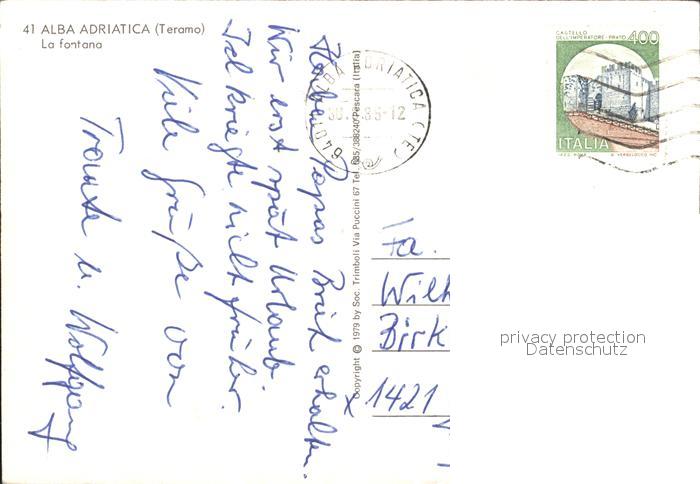 41 ALBA ADRIATICA (Teramo)
La fontana
Haben Papas Brief erhalten.
Wir erst spät Urlaub.
Ich kriegte nicht früher.
Viele Grüße von
Traute u. Wolfgang
64011 ALBA ADRIATICA (TE)
Copyright © 1979 by Soc. Trimboli Via Puccini 67 Tel. 085/388240 Pescara (Italia)
CASTELLO
DELL'IMPERATORE - PRATO 400
ITALIA
Fa.
Wilh
Birk
1421
privacy protection
Datenschutz